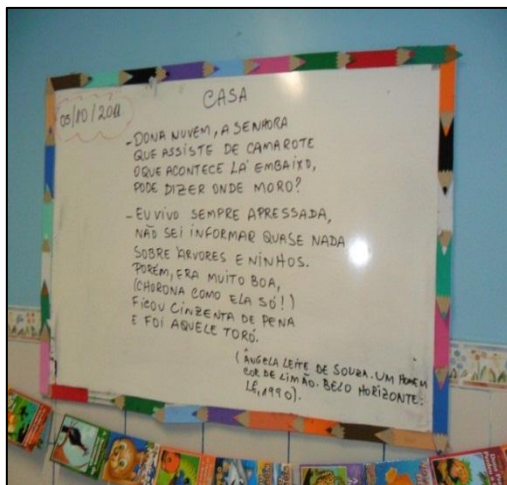 CASA
05/10/2011
-DONA NUVEM, A SENHORA
QUE ASSISTE DE CAMAROTE
O QUE ACONTECE LÁ EMBAIXO,
PODE DIZER ONDE MORO?
-EU VIVO SEMPRE APRESSADA,
NÃO SEI INFORMAR QUASE NADA
SOBRE ÁRVORES E NINHOS.
PORÉM, ERA MUITO BOA,
(CHORONA COMO ELA SÓ!)
FICOU CINZENTA DE PENA
E FOI AQUELE TORÓ.
(ÂNGELA LEITE DE SOUZA. UM HOMEM
COR DE LIMÃO. BELO HORIZONTE:
LÊ, 1990).